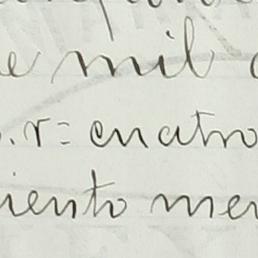 e mil
r= cuatro
iento men